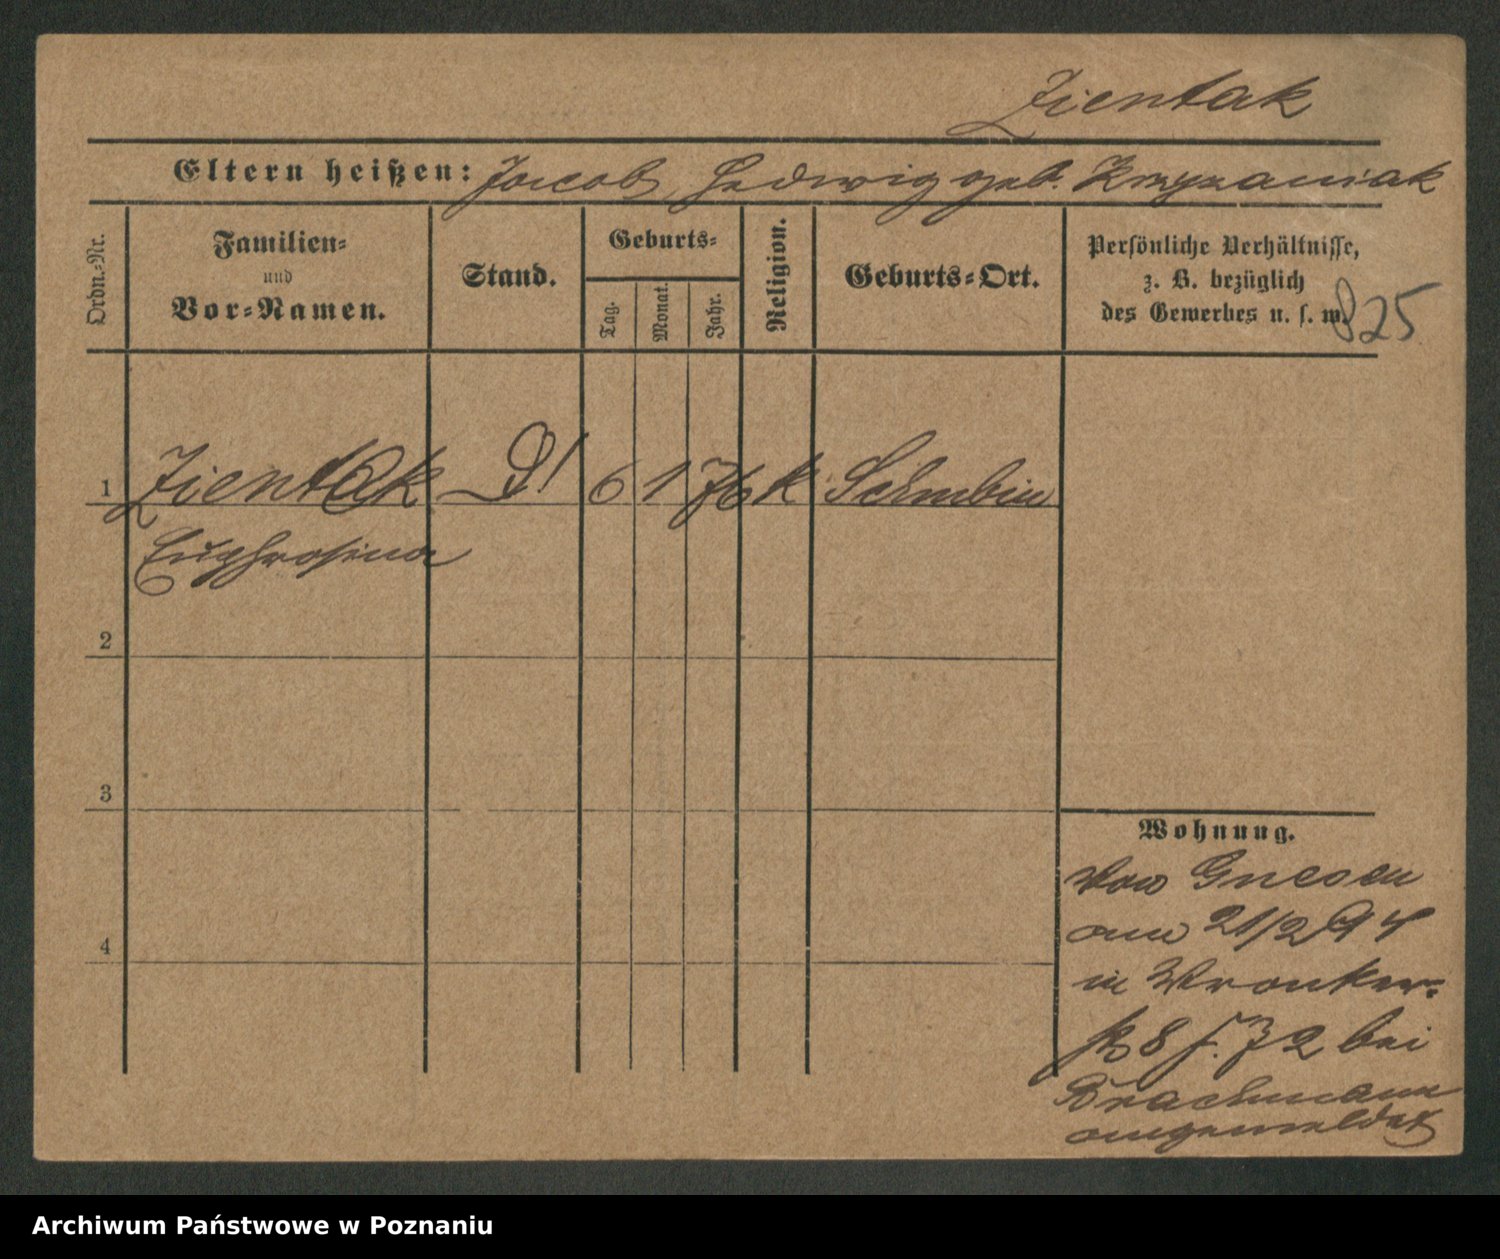 Zientak
Eltern heißen: Jacob, Hedwig geb. Krzyzaniak
Ordn.-Nr.
Familien-
und
Vor-Namen.
Stand.
Geburts-
Tag.
Monat.
Jahr.
Religion.
Geburts-Ort.
Persönliche Verhältnisse,
z. B. bezüglich
des Gewerbes u. s. w.
825
1 Zientak D! 6 1 76 k Schubin
Euphrosina
2
3
4
Wohnung.
Von Gnesen
am 21/2 94
in Wronker-
8 72 bei
Brachmann
angemeldet
Archiwum Państwowe w Poznaniu